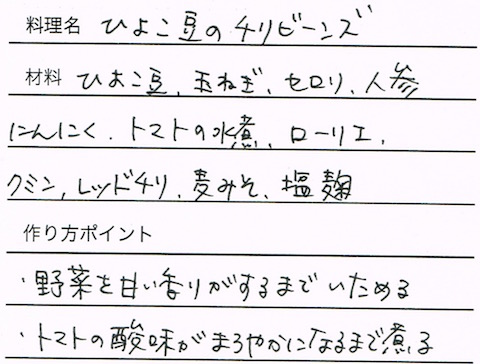 料理名 ひよこ豆のチリビーンズ
材料 ひよこ豆、玉ねぎ、セロリ、人参
にんにく、トマトの水煮、ローリエ、
クミン、レッドチリ、麦みそ、塩麹
作り方ポイント
・野菜を甘い香りがするまでいためる
・トマトの酸味がまろやかになるまで煮る